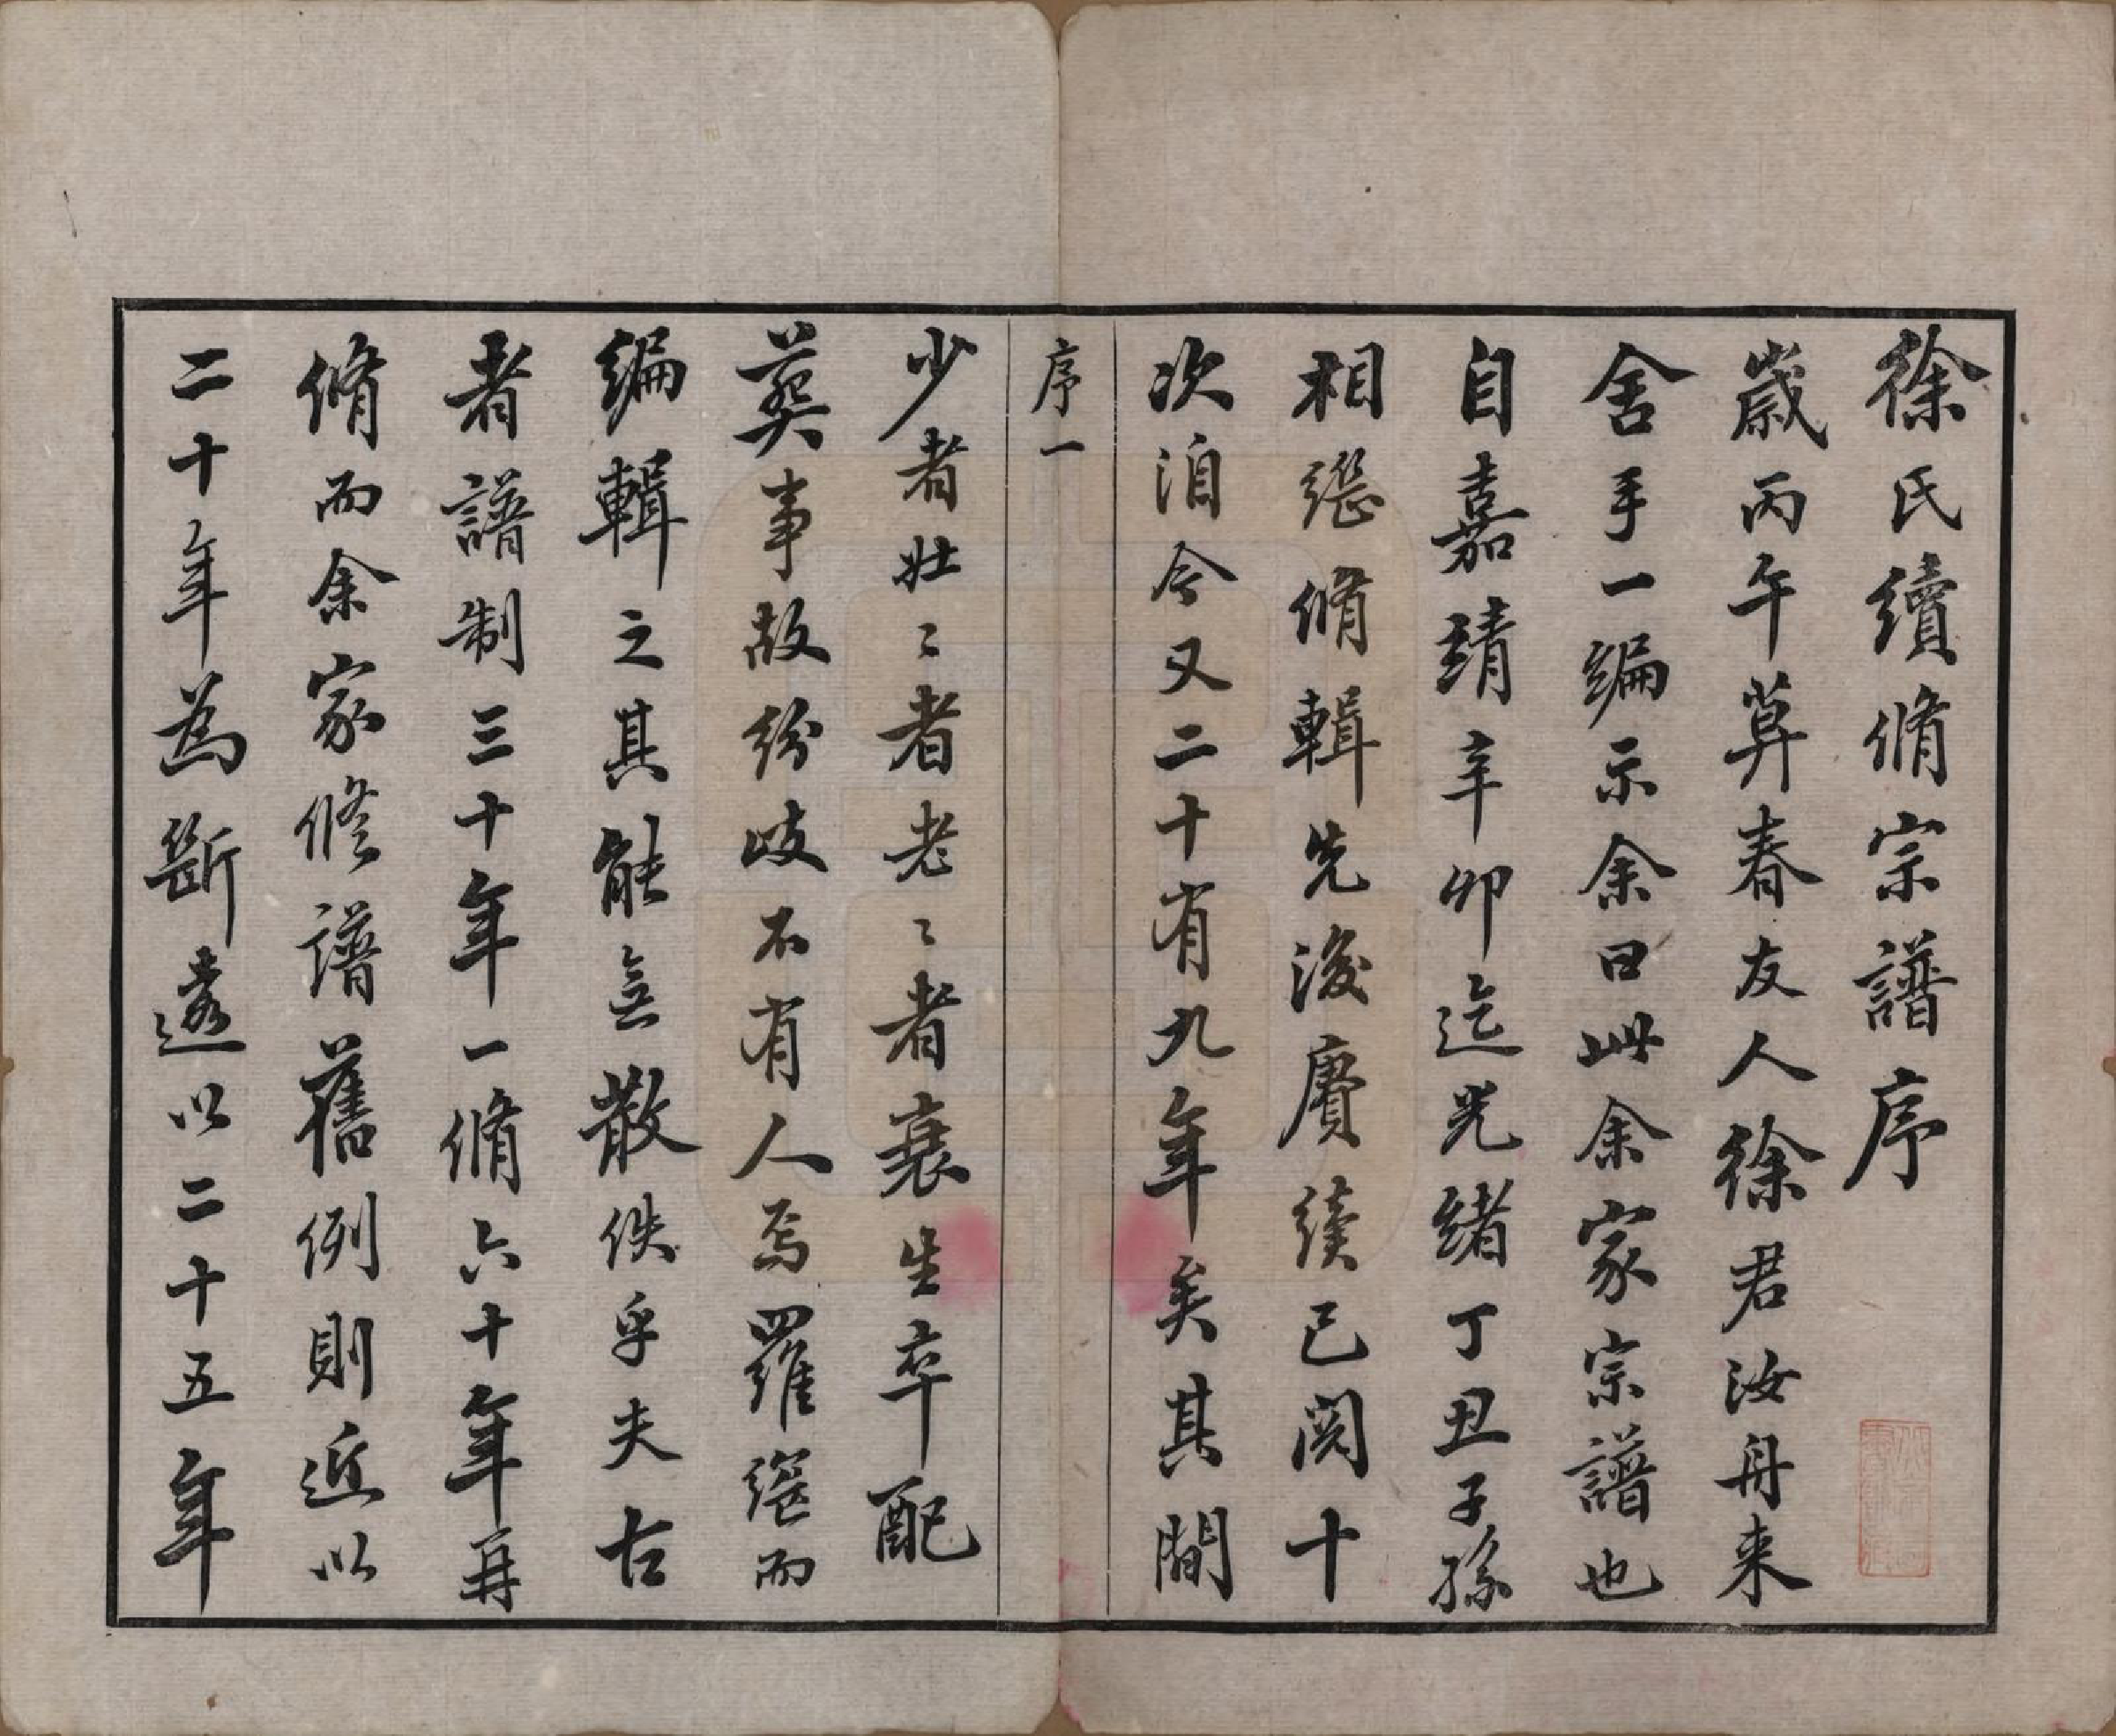 徐氏續脩宗譜序
歲丙午算春友人徐君汝舟来
舍手一编示余曰此余家宗譜也
自嘉靖辛卯迄光緒丁丑子孫
相繼脩輯先後賡續已閱十
次洎今又二十有九年矣其間
序一
少者壯〻者老〻者衰生卒配
葬事故紛歧不有人焉羅繼而
编輯之其能無散佚乎夫古
者譜制三十年一脩六十年再
脩而余家修譜舊例則近以
二十年為斷遠以二十五年